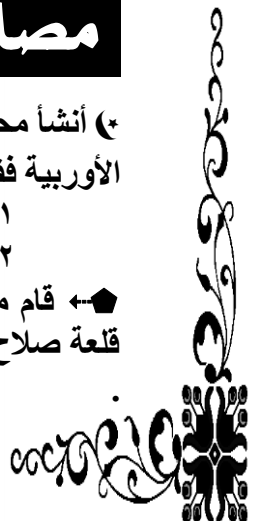 مصا
أنشأ مح
الأوربية فق
١
٢
قام م
قلعة صلاح
.